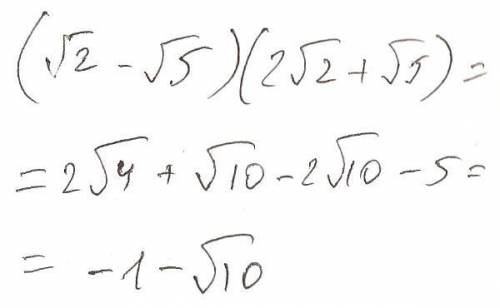 (√2 - √5)(2√2 + √5) =
= 2√4 + √10 - 2√10 - 5 =
= -1 - √10